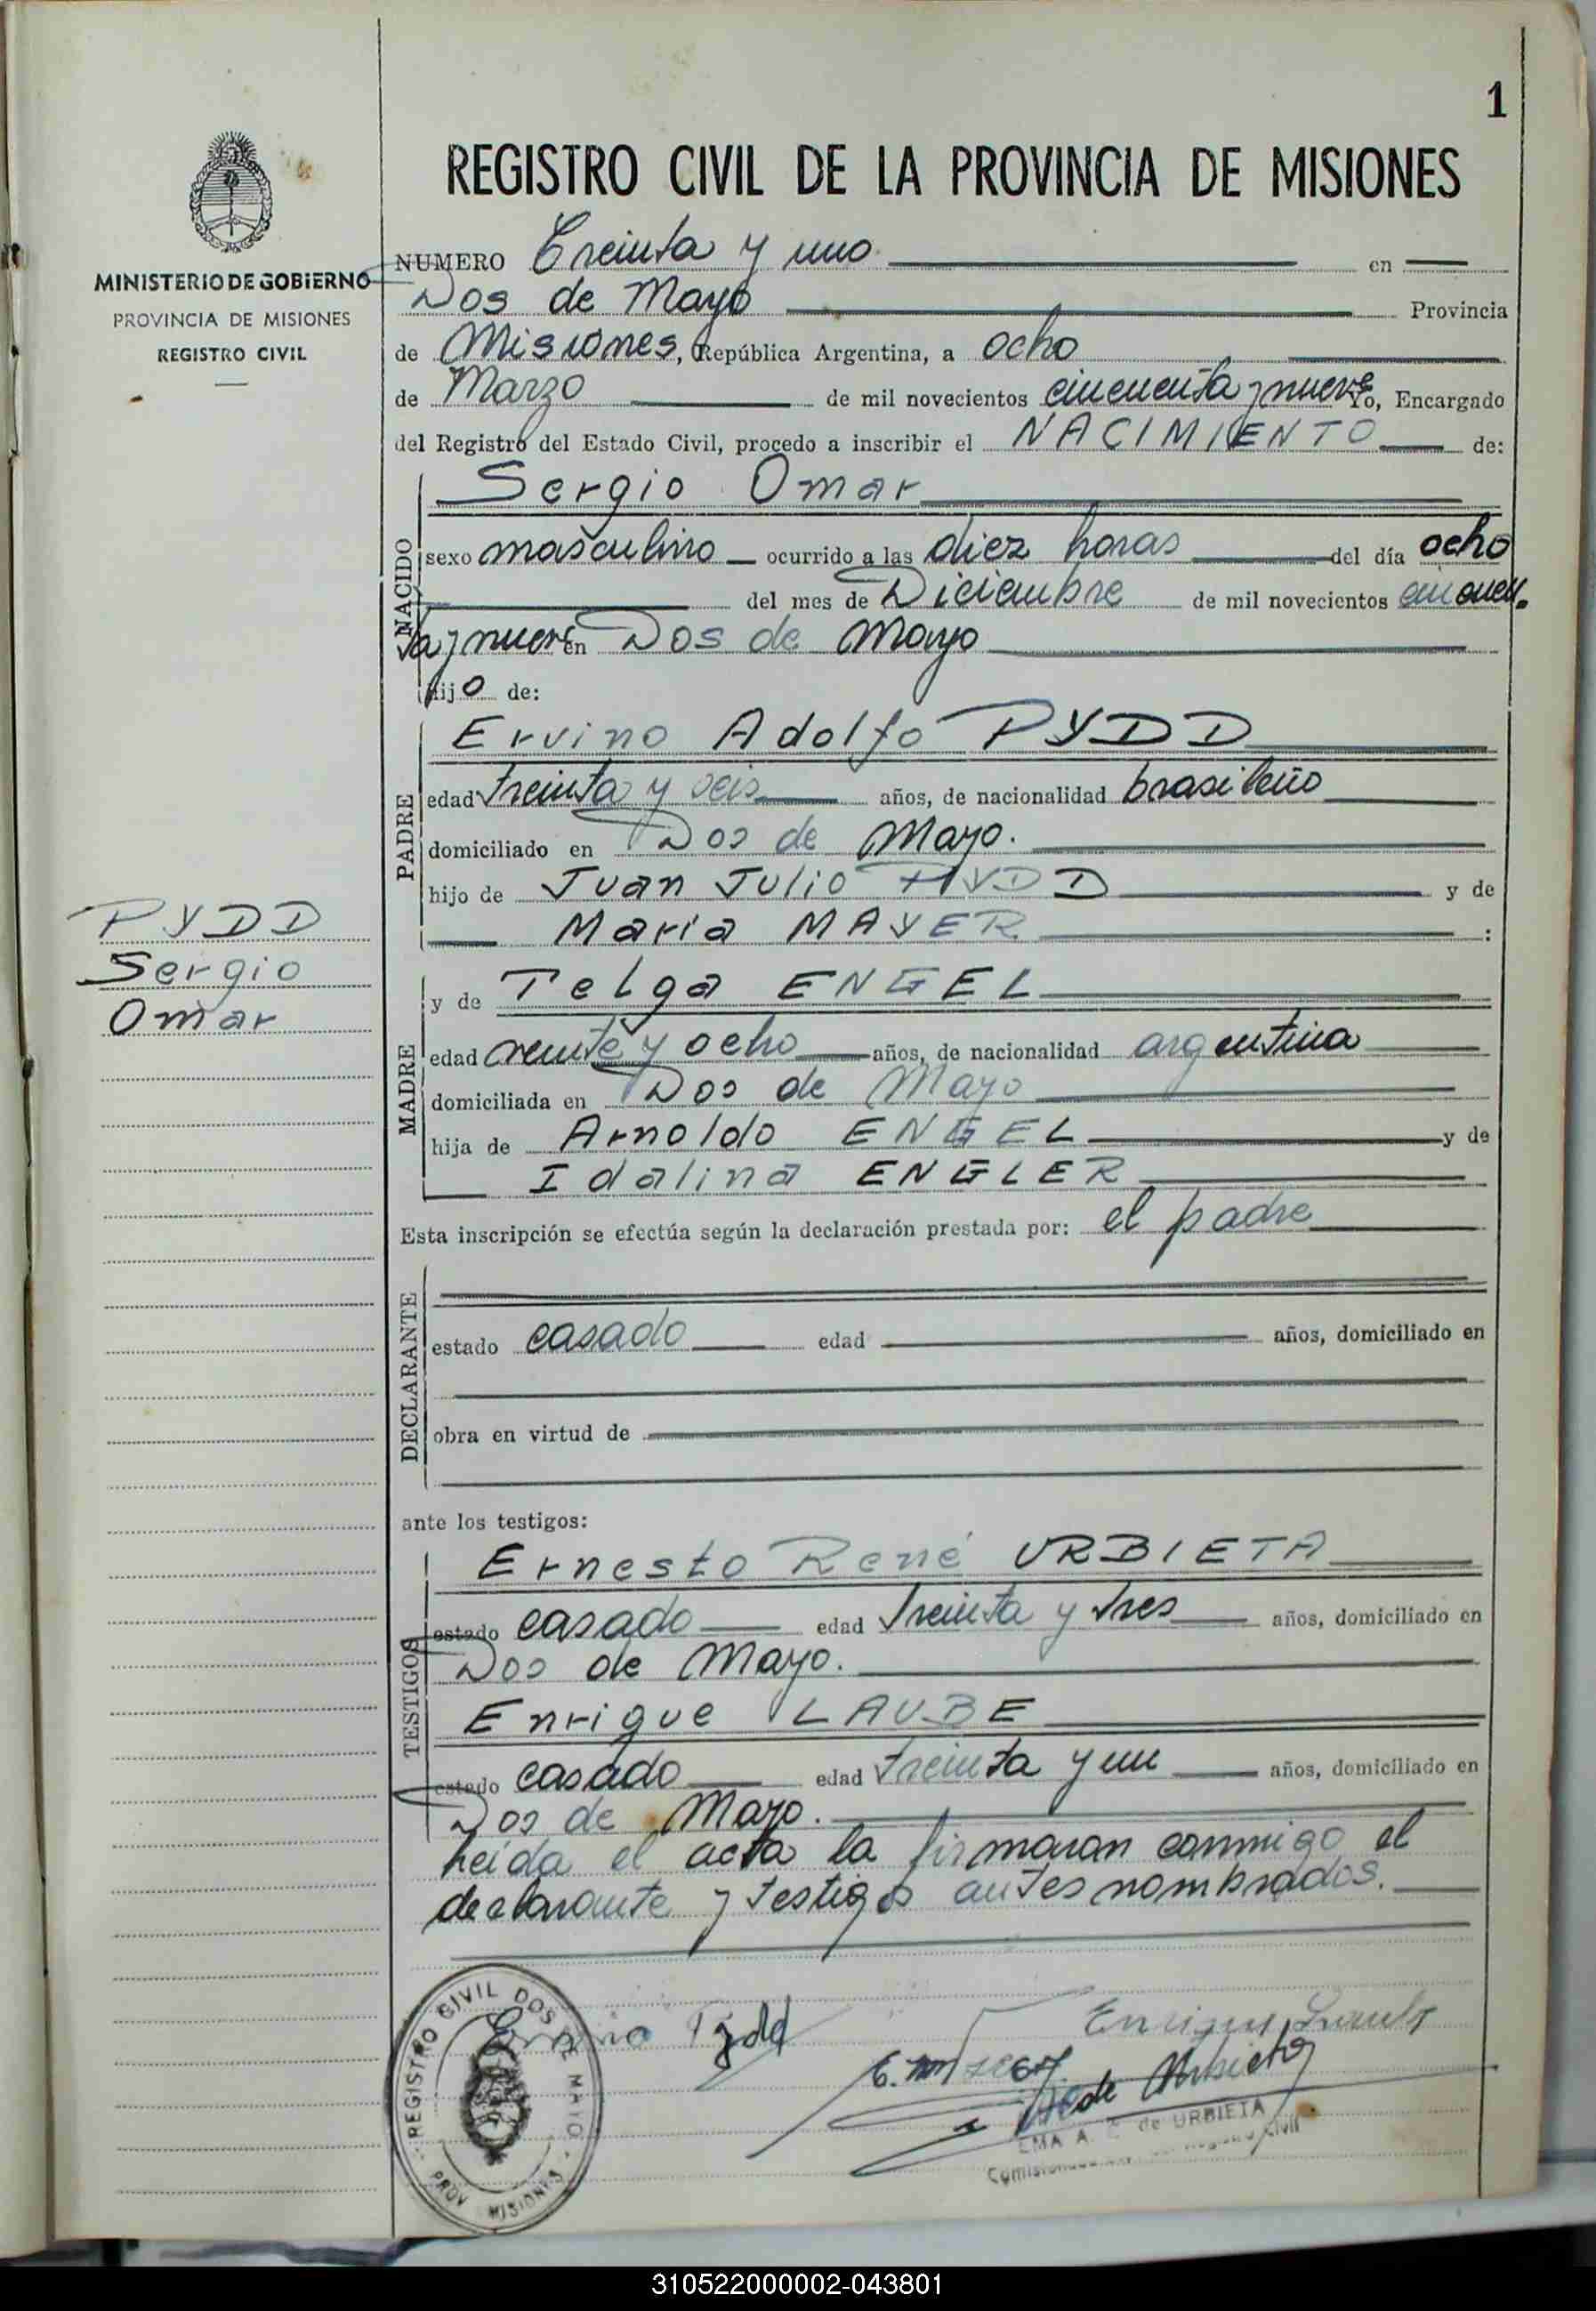 1
REGISTRO CIVIL DE LA PROVINCIA DE MISIONES
MINISTERIO DE GOBIERNO
PROVINCIA DE MISIONES
REGISTRO CIVIL
NUMERO Treinta y uno en
Dos de Mayo Provincia
de Misiones, República Argentina, a ocho
de Marzo de mil novecientos cincuenta y nueve Yo, Encargado
del Registro del Estado Civil, procedo a inscribir el NACIMIENTO de:
NACIDO
Sergio Omar
sexo masculino ocurrido a las diez horas del día ocho
del mes de Diciembre de mil novecientos cincuen
ta y nueve en Dos de Mayo
hijo de:
PADRE
Ervino Adolfo PYDD
edad treinta y seis años, de nacionalidad brasileño
domiciliado en Dos de Mayo.
hijo de Juan Julio PYDD y de
María MAYER :
PYDD
Sergio
Omar
MADRE
y de Telga ENGEL
edad veinte y ocho años, de nacionalidad argentina
domiciliada en Dos de Mayo
hija de Arnoldo ENGEL y de
Idalina ENGLER
Esta inscripción se efectúa según la declaración prestada por: el padre
DECLARANTE
estado casado edad años, domiciliado en
obra en virtud de
ante los testigos:
TESTIGOS
Ernesto René URBIETA
estado casado edad treinta y tres años, domiciliado en
Dos de Mayo.
Enrique LAUBE
estado casado edad treinta y un años, domiciliado en
Dos de Mayo.
Leída el acta la firmaron conmigo el
declarante y testigos antes nombrados.
REGISTRO CIVIL DOS DE MAYO
PROV MISIONES
Ervino Pydd
Enrique Laube
de Urbieta
EMA A. de URBIETA
Registro Civil
310522000002-043801